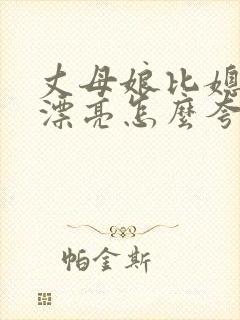 丈母娘比媳
漂亮怎麼夸
帕金斯